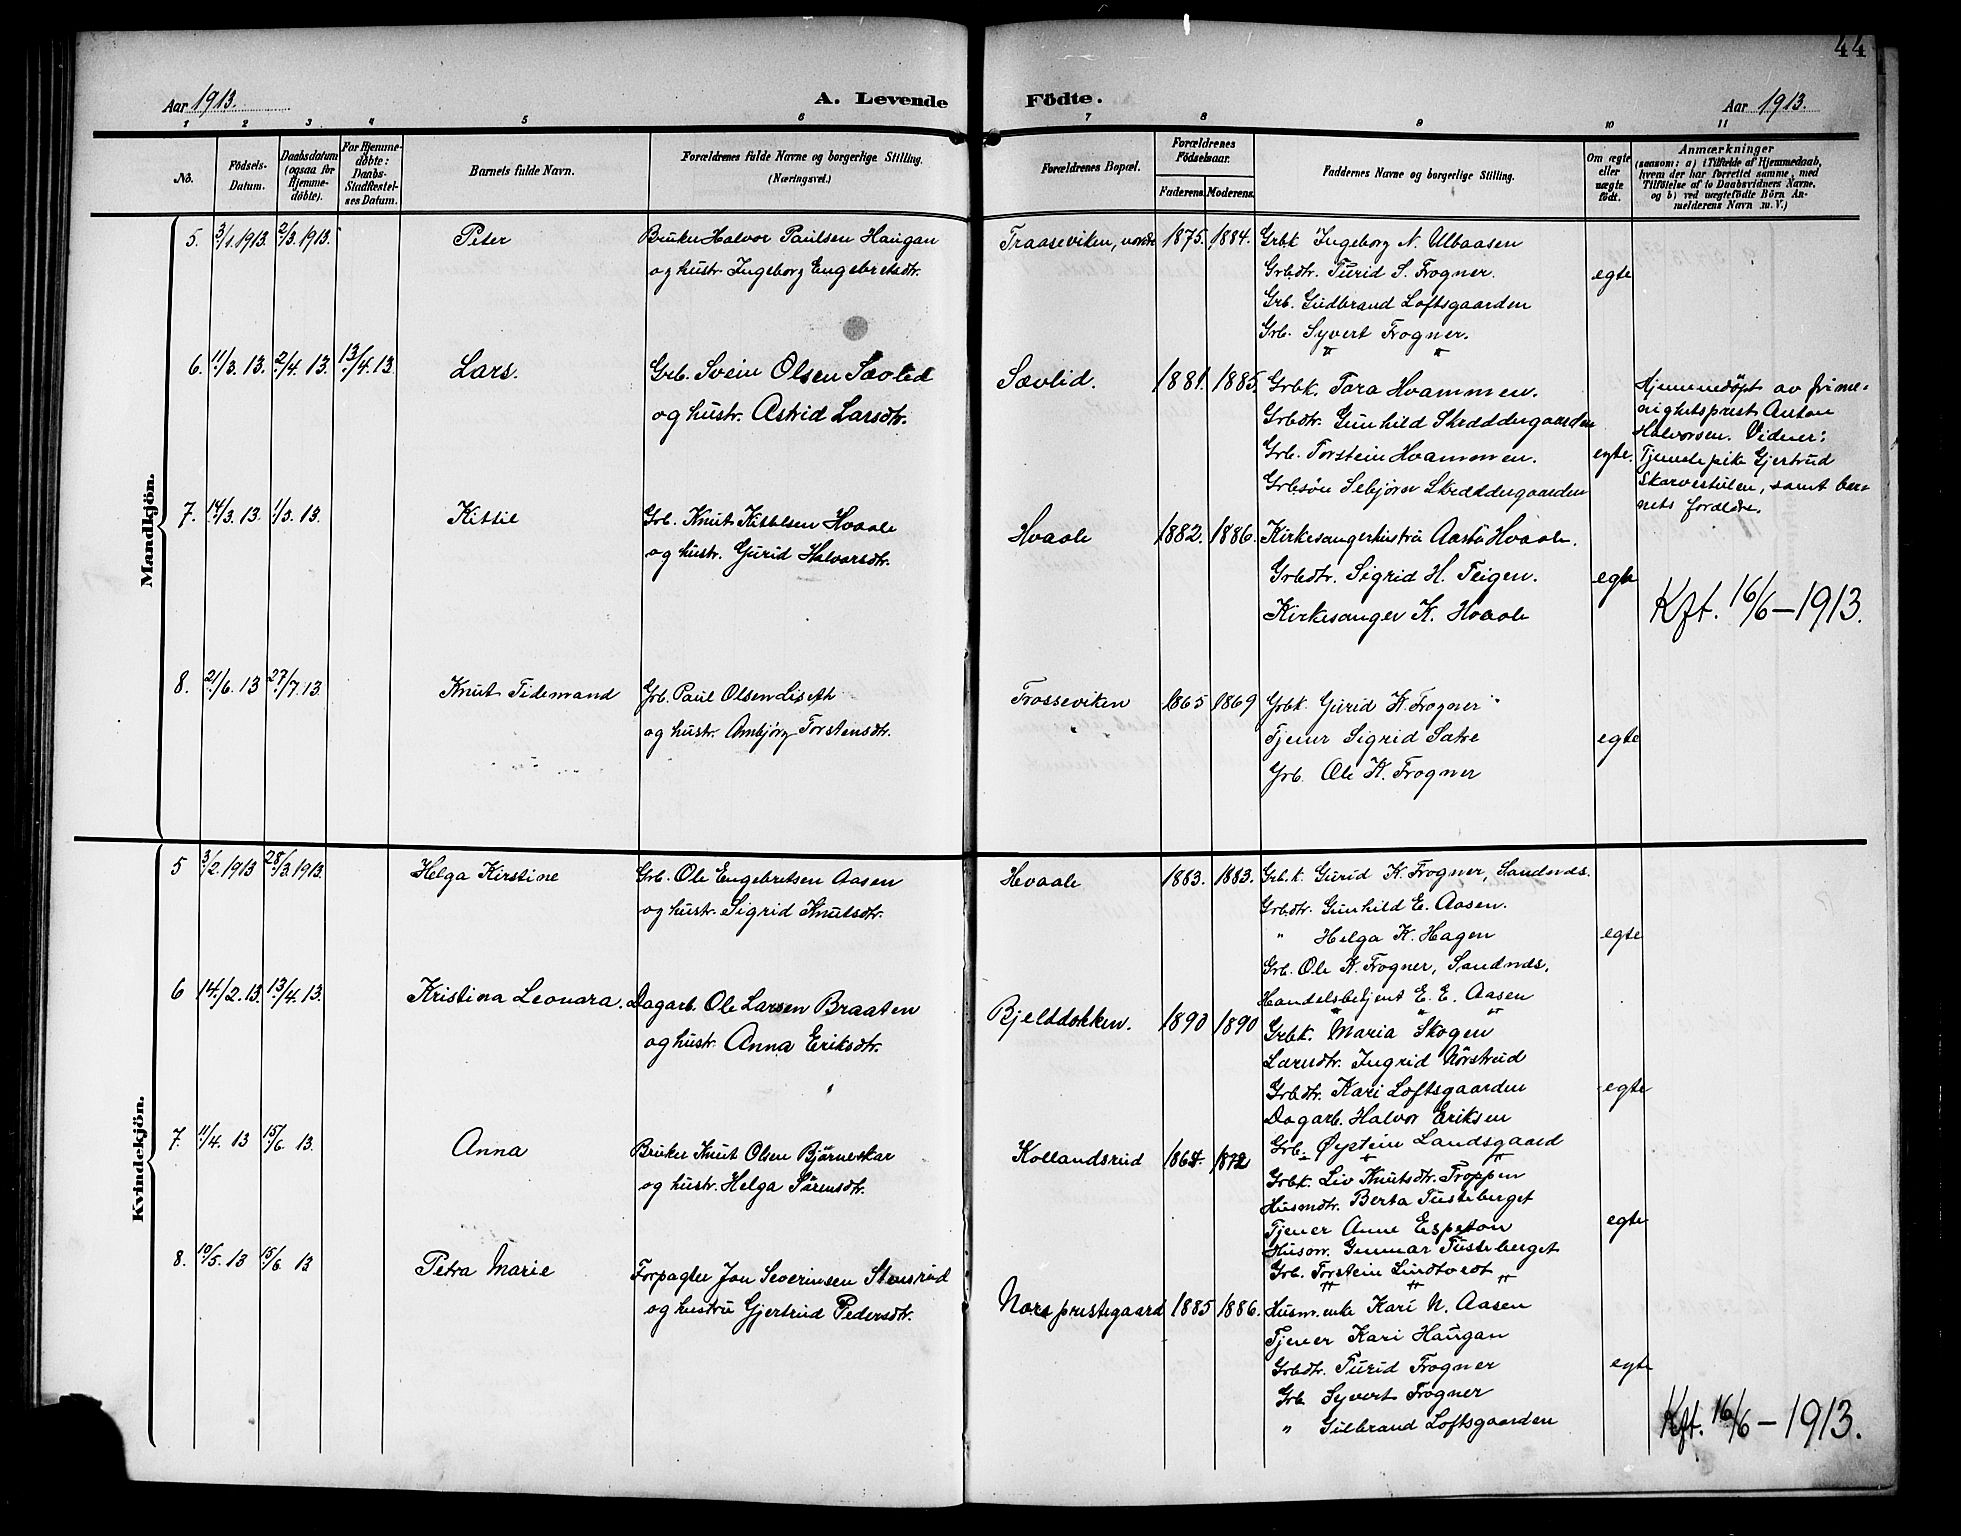 44
Aar 1913.
A. Levende Födte.
Aar 1913.
1 2 3 4 5 6 7 8 9 10 11
No.
Födsels-
Datum.
Daabsdatum
(ogsaa for
Hjemme-
döbte).
For Hjemme-
döbte:
Daabs-
Stadfæstel-
ses Datum.
Barnets fulde Navn.
Forældrenes fulde Navne og borgerlige Stilling.
(Næringsvei.)
Forældrenes Bopæl.
Forældrenes
Födselsaar.
Faderens. Moderens.
Faddernes Navne og borgerlige Stilling.
Om ægte
eller
uægte
födt.
Anmærkninger
(saasom: a) i Tilfælde af Hjemmedaab,
hvem der har forrettet samme, med
Tilföielse af to Daabsvidners Navne,
og b) ved uægtefödte Börn An-
melderens Navn m. V.)
Mandkjön.
5. 3/1.1913. 2/3.1913. Peter Bruker Halvor Paulsen Haugan Traaseviken, 1875. 1884. Grbk Ingeborg N. Ulbaasen
og hustr. Ingeborg Engebretsdtr. Grbdtr. Turid S. Frogner. egte
Grb. Gudbrand Loftsgaarden
Grb. Syvert Frogner.
6. 11/3. 13. 2/4. 13. 13/4. 13 Lars. Grb. Svein Olsen Sævlid Sævlid. 1881. 1885. Grbk. Tara Hvammen. Hjemmedöpt av frime-
og hustr. Astrid Larsdtr. Grbdtr. Gunhild Skræddergaarden nighetsprest Anton
Halvorsen. Vidner:
Grb. Torstein Hvammen. egte. Tjenestepike Gjertrud
Grbsön Sebjörn Skræddergaarden Skarvestulen, samt bar-
nets foreldre.
7. 14/3. 13. 1/5. 13. Kittil Grb. Knut Kittilsen Hvaale Hvaale 1882. 1886. Kirkesangerhustru Aaste Hvaale.
og hustr. Gurid Halvorsdtr. Grbdtr. Sigrid H. Teigen. egte
Kirkesanger K. Hvaale Kft. 16/6 – 1913.
8. 21/6. 13 27/7. 13 Knut Tidemand Grb. Paul Olsen Liseth Traaseviken 1865 1869 Grbk. Gurid K. Frogner
og hustr. Ambjörg Torsteinsdtr. Tjener Sigrid Satre egte
Grb. Ole K. Frogner
Kvindekjön.
5 3/2. 1913 28/3. 1913. Helga Kirstine Grb. Ole Engebretsen Aasen Hvaale 1883. 1883. Grb.k. Gurid K. Frogner, Sandnds.
og hustr. Sigrid Knutsdtr. Grbdtr. Gunhild E. Aasen.
" Helga K. Hagen egte
Grb. Ole K. Frogner, Sandnds.
Handelsbetjent E. E. Aasen
6 14./2. 13. 13/4. 13. Kristina Leonara. Dagarb. Ole Larsen Braaten Bjelddokken. 1890 1890 Grbk. Maria Skogen
og hustr. Anna Eriksdtr. Lærerdtr. Ingrid Nörstrud
Grbdtr. Kari Loftsgaarden egte
Dagarb. Halvor Eriksen
Grb. Øystein Landsgaard
7. 11/4. 13 15/6. 13. Anna Bruker Knut Olsen Björneskar Kollandsrud 1864. 1872 Grbk. Liv Knutsdtr. Troppen
og hustr. Helga Sörensdtr. Husmdtr. Berta Tusteberget
Tjener Anne Espeton egte
Husm. Gunnar Tusteberget
Grb. Torstein Lindtvedt
8. 10/5. 13 15/6 13 Petra Marie Forpagter Jon Severinsen Stensrud Nore prestegaard 1885 1886. Husm.enke Kari N. Aasen
og hustru Gjertrud Pedersdtr. Tjener Kari Haugan
Grbdtr. Turid Frogner egte
Grb Syvert Frogner
" Gulbrand Loftsgaarden Kft. 16/6 – 1913.